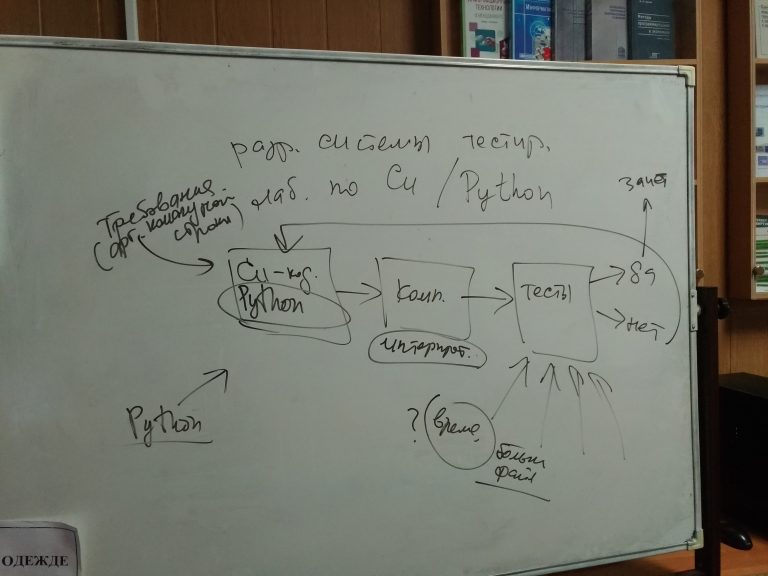 разр. системы тестир.
лаб. по Си / Python
зачет
Требования
(арг. командной
строки)
Си-код.
Python
комп.
тесты
да
нет
интерпрет.
Python
? время
больш
файл
ОДЕЖДЕ